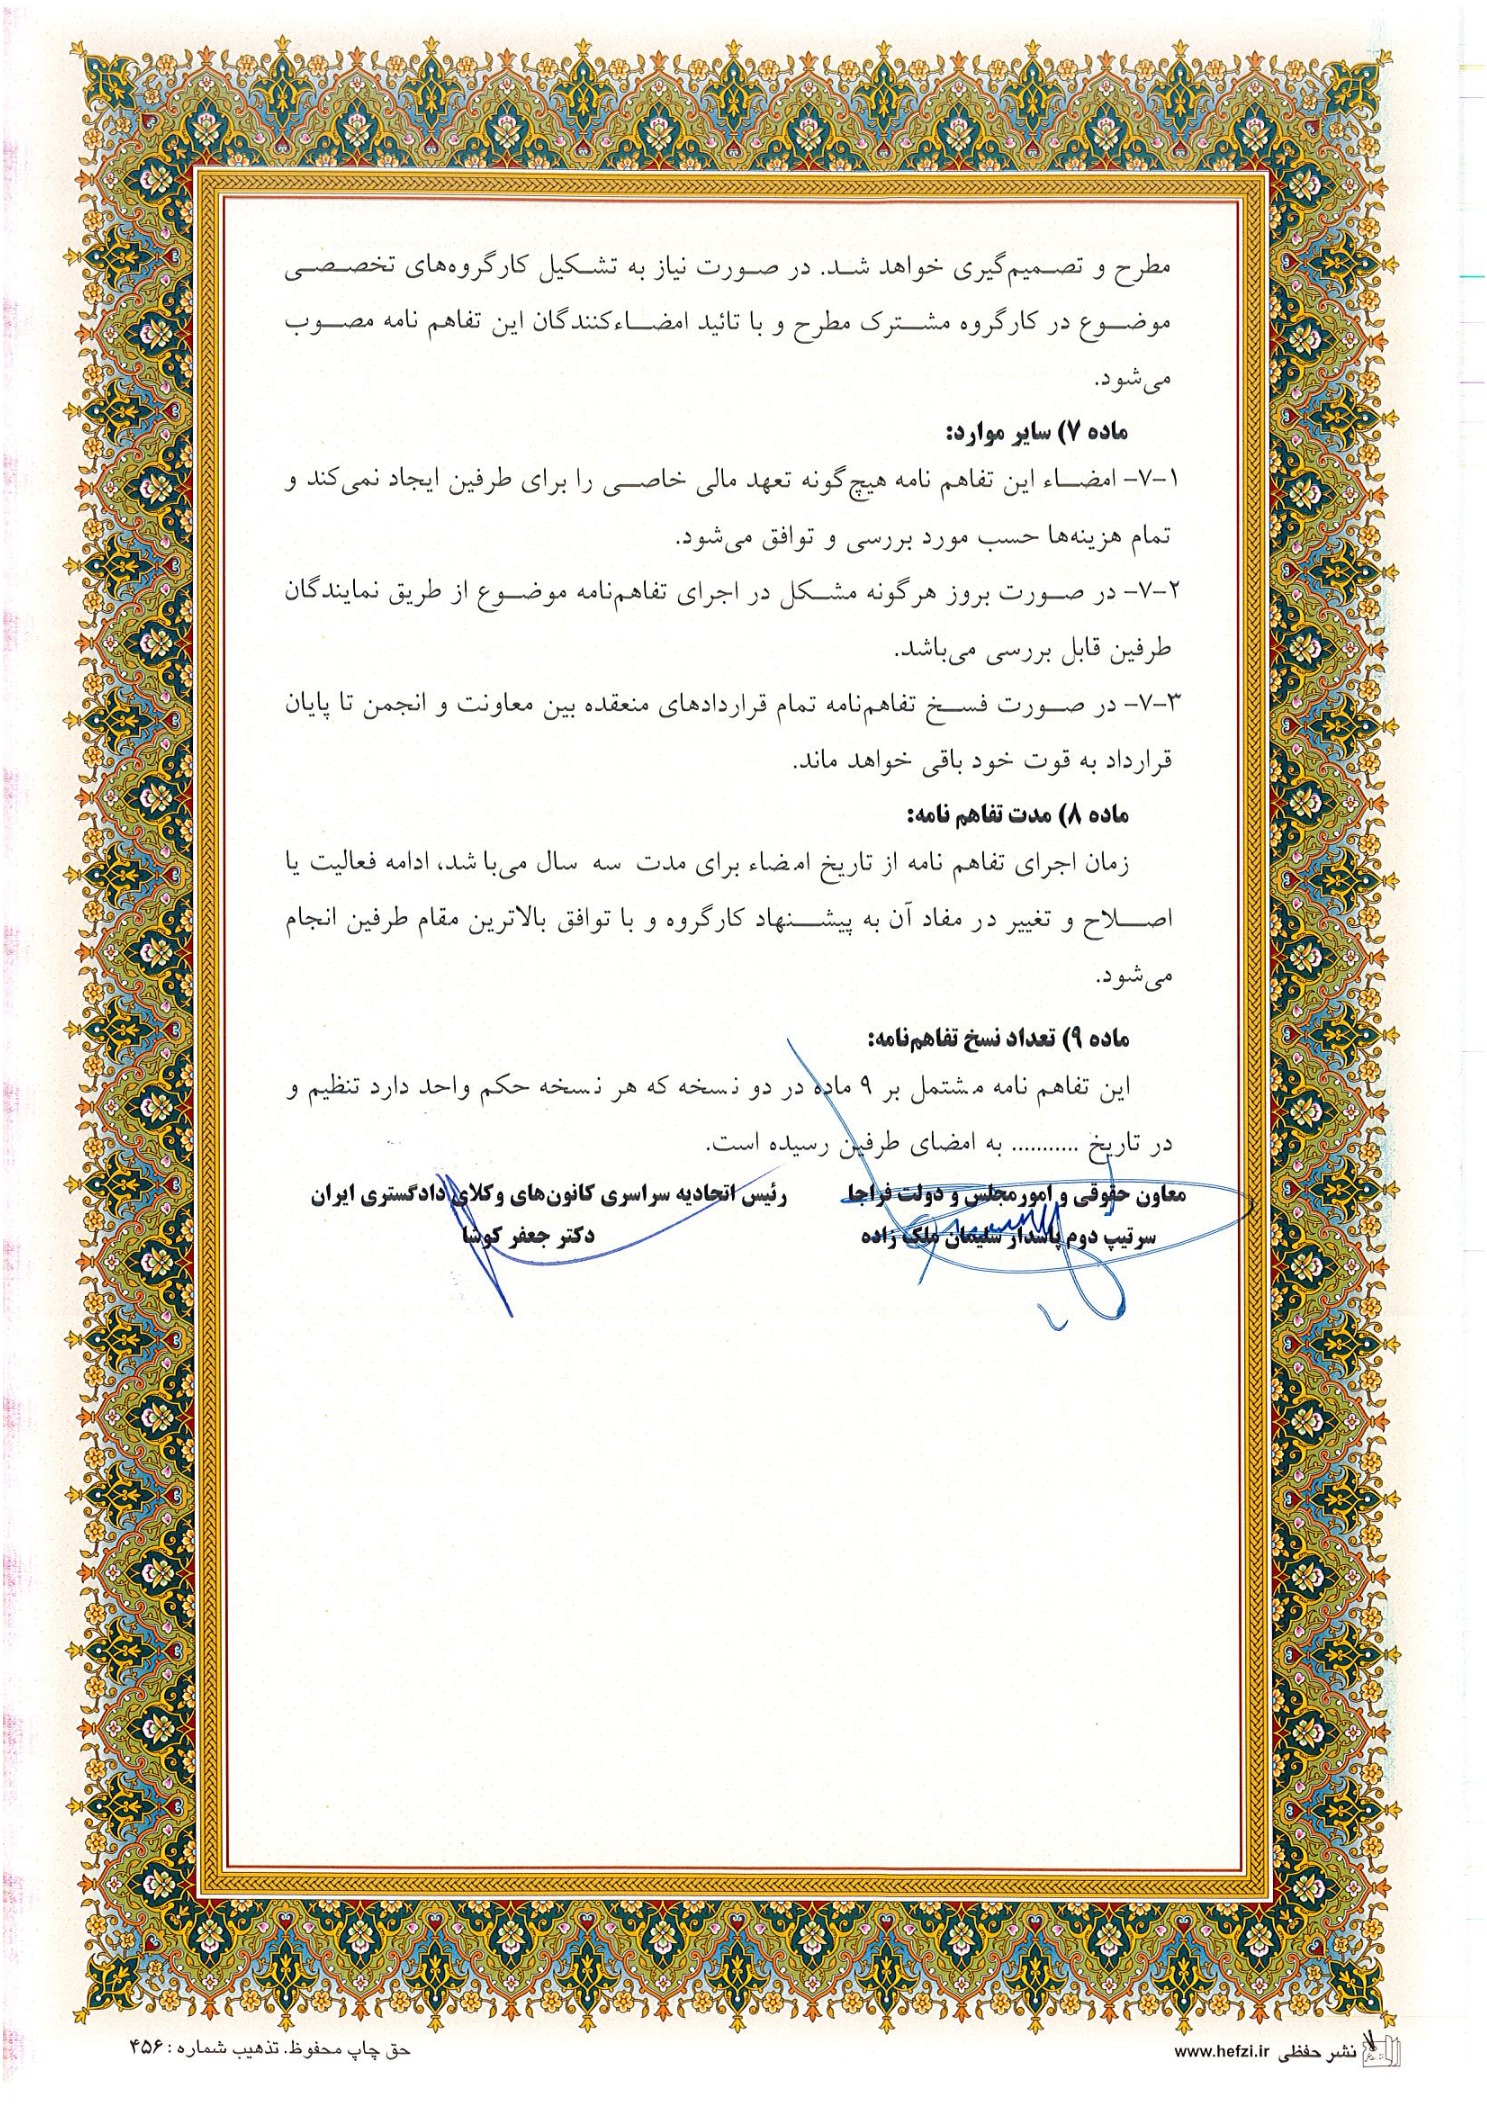 مطرح و تصمیم‌گیری خواهد شد. در صورت نیاز به تشکیل کارگروه‌های تخصصی
موضوع در کارگروه مشترک مطرح و با تائید امضاءکنندگان این تفاهم نامه مصوب
می‌شود.
ماده ۷) سایر موارد:
۷-۱- امضاء این تفاهم نامه هیچ‌گونه تعهد مالی خاصی را برای طرفین ایجاد نمی‌کند و
تمام هزینه‌ها حسب مورد بررسی و توافق می‌شود.
۷-۲- در صورت بروز هرگونه مشکل در اجرای تفاهم‌نامه موضوع از طریق نمایندگان
طرفین قابل بررسی می‌باشد.
۷-۳- در صورت فسخ تفاهم‌نامه تمام قراردادهای منعقده بین معاونت و انجمن تا پایان
قرارداد به قوت خود باقی خواهد ماند.
ماده ۸) مدت تفاهم نامه:
زمان اجرای تفاهم نامه از تاریخ امضاء برای مدت سه سال می‌باشد، ادامه فعالیت یا
اصلاح و تغییر در مفاد آن به پیشنهاد کارگروه و با توافق بالاترین مقام طرفین انجام
می‌شود.
ماده ۹) تعداد نسخ تفاهم‌نامه:
این تفاهم نامه مشتمل بر ۹ ماده در دو نسخه که هر نسخه حکم واحد دارد تنظیم و
در تاریخ ........... به امضای طرفین رسیده است.
معاون حقوقی و امورمجلس و دولت فراجا رئیس اتحادیه سراسری کانون‌های وکلای دادگستری ایران
سرتیپ دوم پاسدار سلیمان ملک زاده دکتر جعفر کوشا
نشر حفظی www.hefzi.ir حق چاپ محفوظ. تذهیب شماره : ۴۵۶